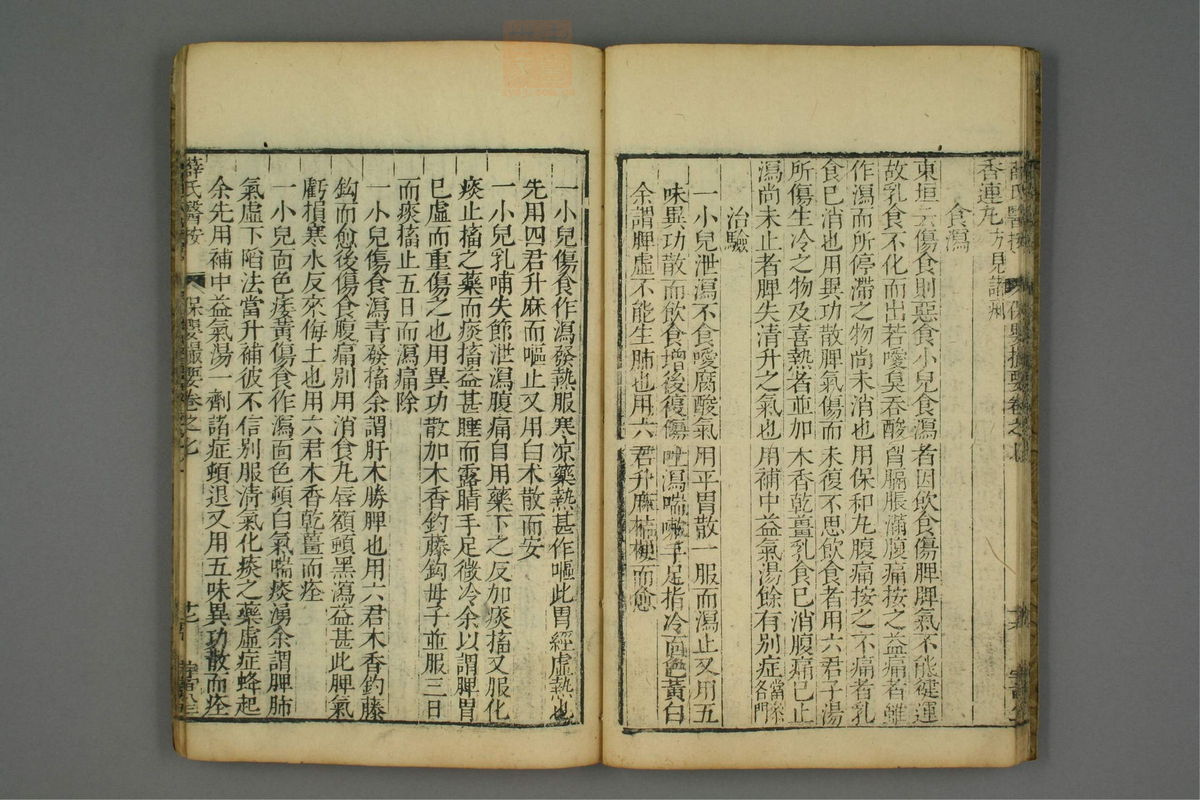 香連丸方見諸痢
食瀉
東垣云傷食則惡食小兒食瀉者因飲食傷脾脾氣不能健運
故乳食不化而出若噯臭吞酸胷膈脹滿腹痛按之益痛者雖
作瀉而所停滯之物尚未消也用保和丸腹痛按之不痛者乳
食已消也用異功散脾氣傷而未復不思飲食者用六君子湯
所傷生冷之物及喜熱者並加木香乾薑乳食已消腹痛已止
瀉尚未止者脾失清升之氣也用補中益氣湯餘有别症當參各門
治驗
一小兒泄瀉不食噯腐酸氣用平胃散一服而瀉止又用五
味異功散而飲食增後復傷吐瀉喘嗽手足指冷面色黃白
余謂脾虛不能生肺也用六君升麻桔梗而愈
一小兒傷食作瀉發熱服寒凉藥熱甚作嘔此胃經虛熱也
先用四君升麻而嘔止又用白朮散而安
一小兒乳哺失節泄瀉腹痛自用藥下之反加痰搐又服化
痰止搐之藥而痰搐益甚睡而露睛手足微冷余以謂脾胃
已虛而重傷之也用異功散加木香釣藤鈎母子並服三日
而痰搐止五日而瀉痛除
一小兒傷食瀉青發搐余謂肝木勝脾也用六君木香釣藤
鈎而愈後傷食腹痛别用消食丸唇額頓黑瀉益甚此脾氣
虧損寒水反來侮土也用六君木香乾薑而痊
一小兒面色痿黃傷食作瀉面色頓白氣喘痰湧余謂脾肺
氣虛下陷法當升補彼不信别服清氣化痰之藥虛症蜂起
余先用補中益氣湯一劑諸症頓退又用五味異功散而痊
薛氏醫按 保嬰撮要卷之七